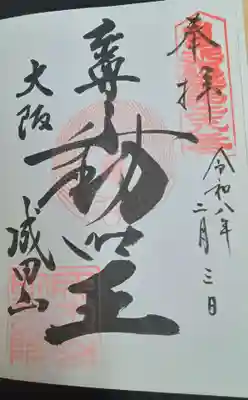 奉拝
令和八年
二月三日
尊動明王
大阪
成田山